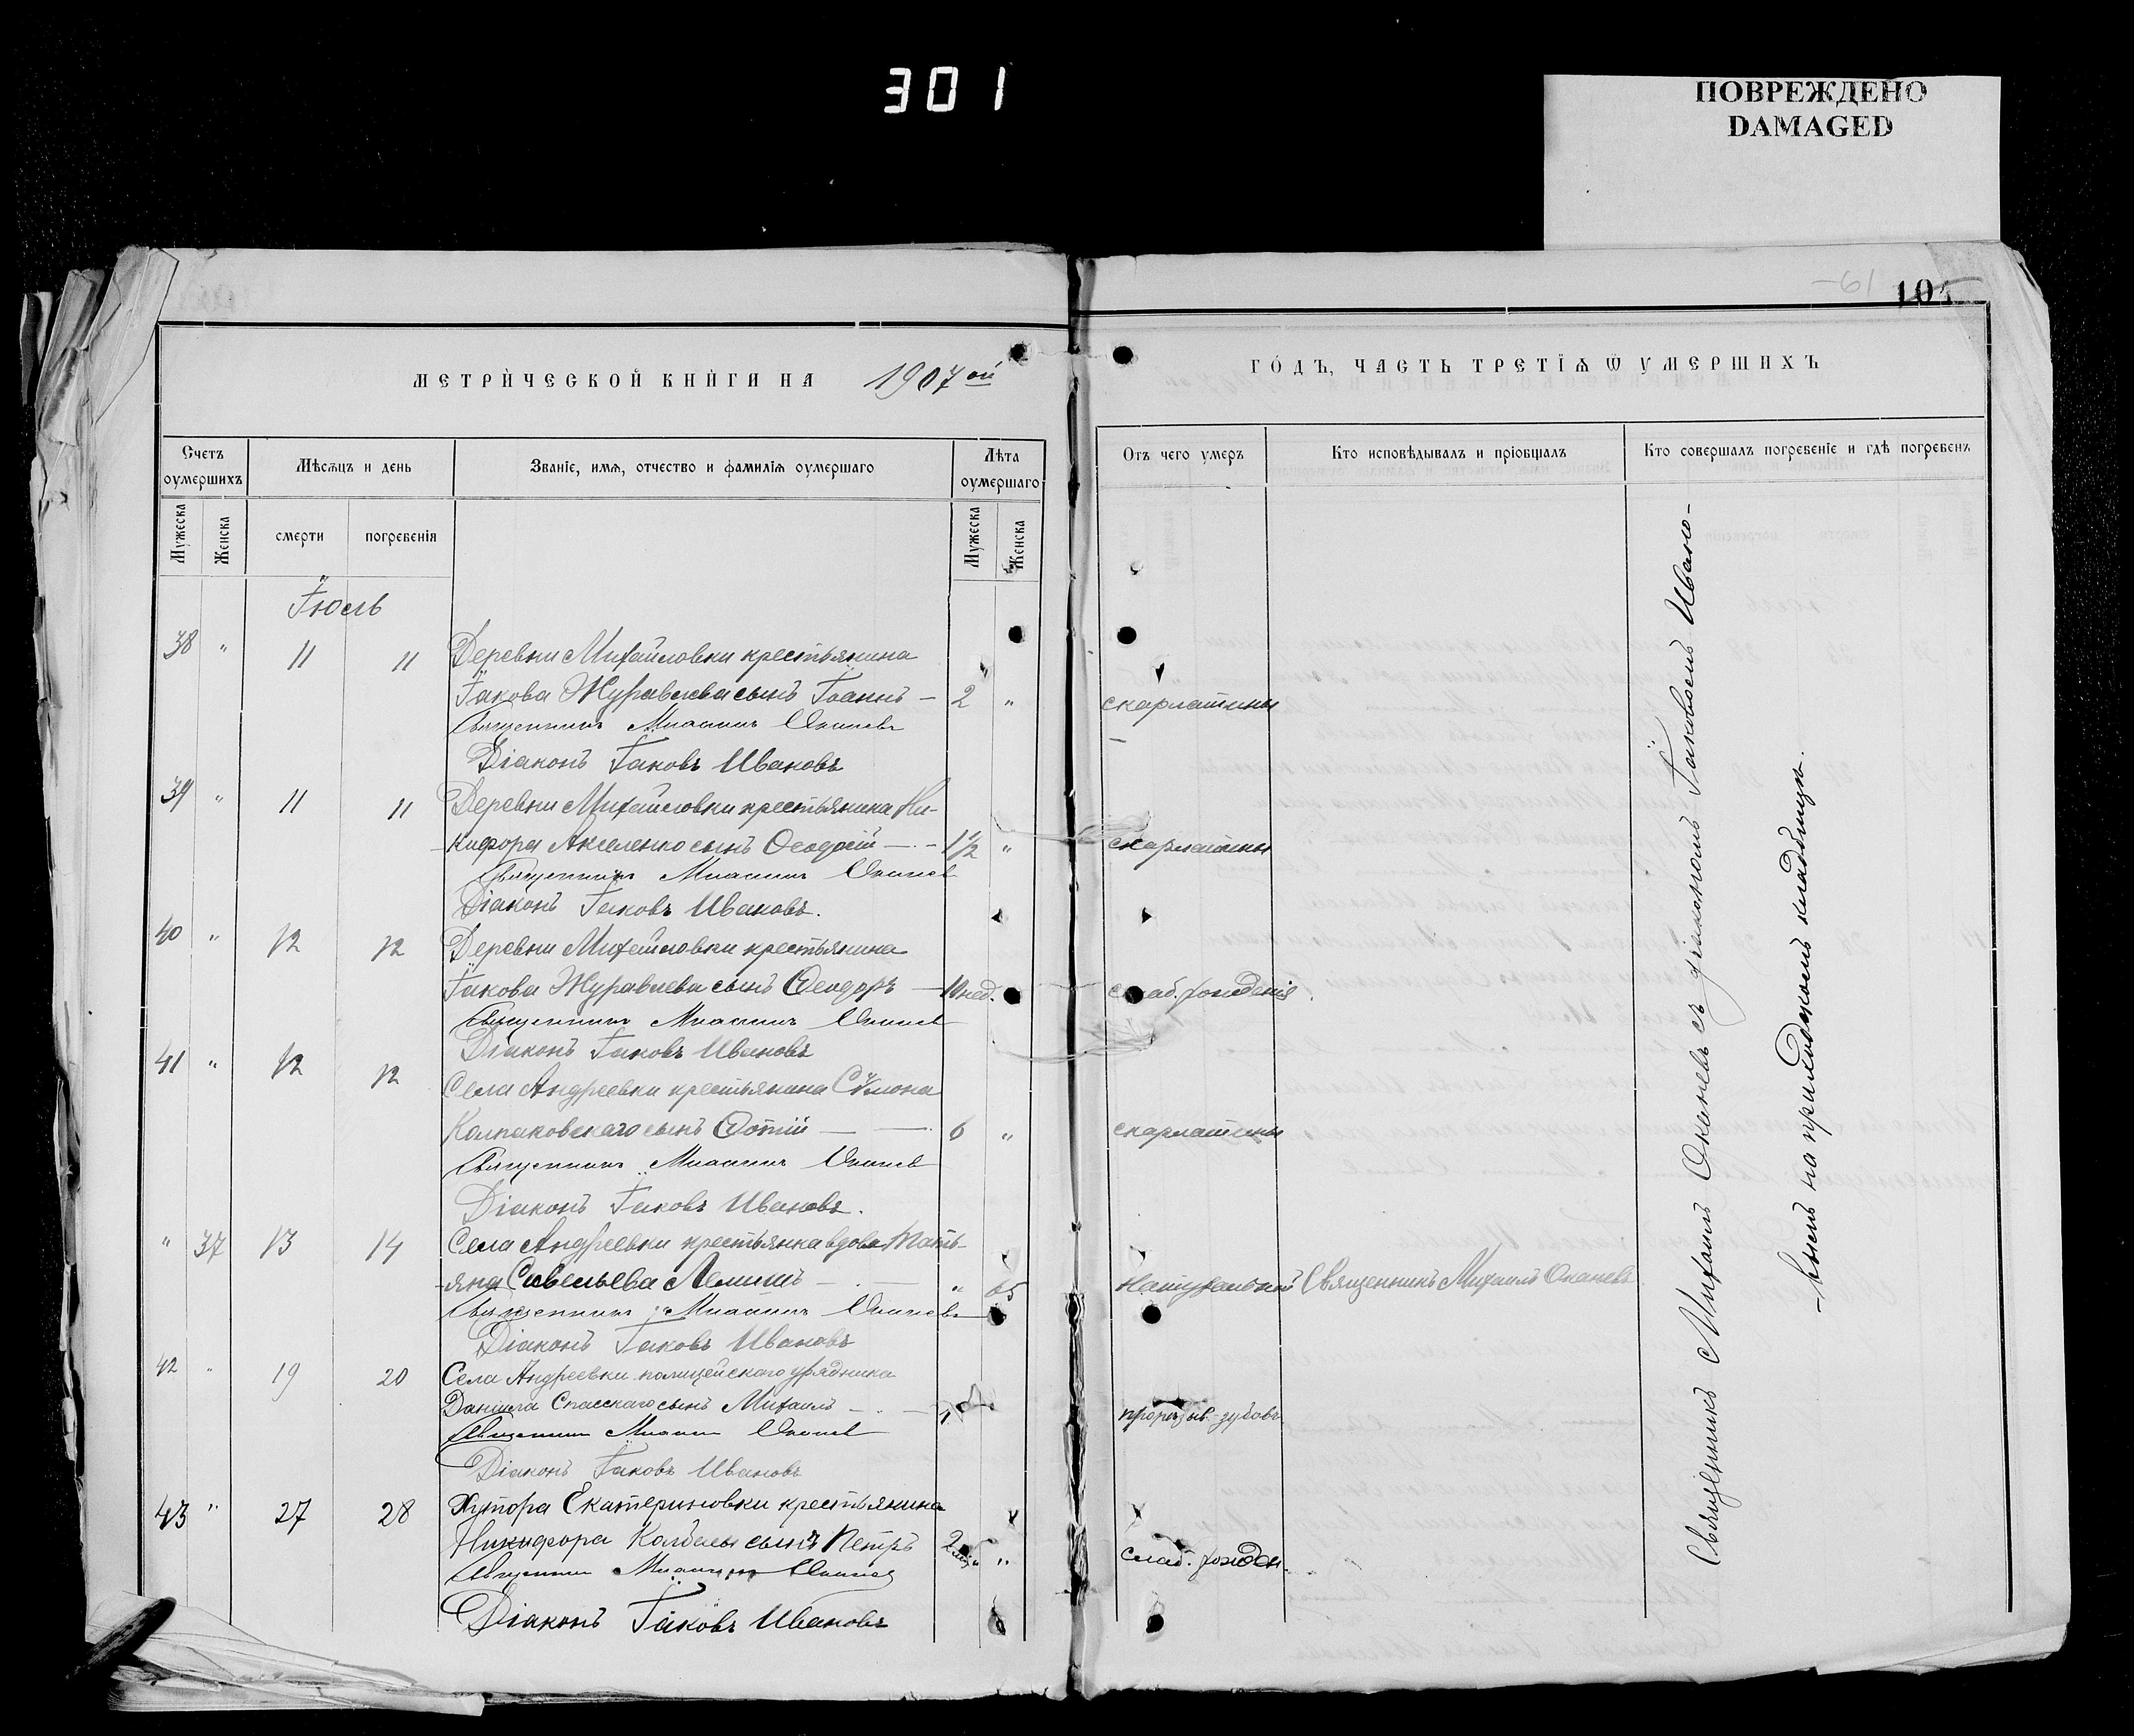 301
ПОВРЕЖДЕНО
DAMAGED
-61
МЕТРИЧЕСКОЙ КНИГИ НА 1907ой
ГОДЪ, ЧАСТЬ ТРЕТІЯ Ѿ УМЕРШИХЪ
Счетъ оумершихъ
Мѣсяцъ и день
Званіе, имя, отчество и фамилія оумершаго
Лѣта оумершаго
Отъ чего умеръ
Кто исповѣдывалъ и пріобщалъ
Кто совершалъ погребеніе и гдѣ погребенъ
Мужеска
Женска
смерти
погребенія
Мужеска
Женска
Іюль
38 " 11 11 Деревни Михайловки крестьянина
Іакова Журавлева сынъ Іоаннъ — 2 " скарлатины
Священникъ Михаилъ Оканевъ
Діаконъ Іаковъ Ивановъ
39 " 11 11 Деревни Михайловки крестьянина Ни-
кифора Акименко сынъ Ѳеодосій — 1 1/2 " скарлатины
Священникъ Михаилъ Оканевъ
Діаконъ Іаковъ Ивановъ.
40 " 12 12 Деревни Михайловки крестьянина
Іакова Журавлева сынъ Ѳеодоръ — 10 нед. слаб. рожденія
Священникъ Михаилъ Оканевъ
Діаконъ Іаковъ Ивановъ
41 " 12 12 Села Андреевки крестьянина Сѵмона
Колпаковскаго сынъ Фотій — 6 " скарлатины
Священникъ Михаилъ Оканевъ
Діаконъ Іаковъ Ивановъ.
" 37 13 14 Села Андреевки крестьянка вдова Тать-
яна Савельева " 65 натуральной Священникъ Михаилъ Оканевъ
Священникъ Михаилъ Оканевъ
Діаконъ Іаковъ Ивановъ
42 " 19 20 Села Андреевки полицейскаго урядника
Даниила Спасскаго сынъ Михаилъ — прорѣзыв. зубовъ
Священникъ Михаилъ Оканевъ
Діаконъ Іаковъ Ивановъ
43 " 27 28 Хутора Екатериновки крестьянина
Никифора сынъ Петръ 2 " слаб. рожден.
Священникъ Михаилъ Оканевъ
Діаконъ Іаковъ Ивановъ
Священникъ Михаилъ Оканевъ съ діакономъ Іаковомъ Ивано-
-вымъ на приходскомъ кладбищѣ.